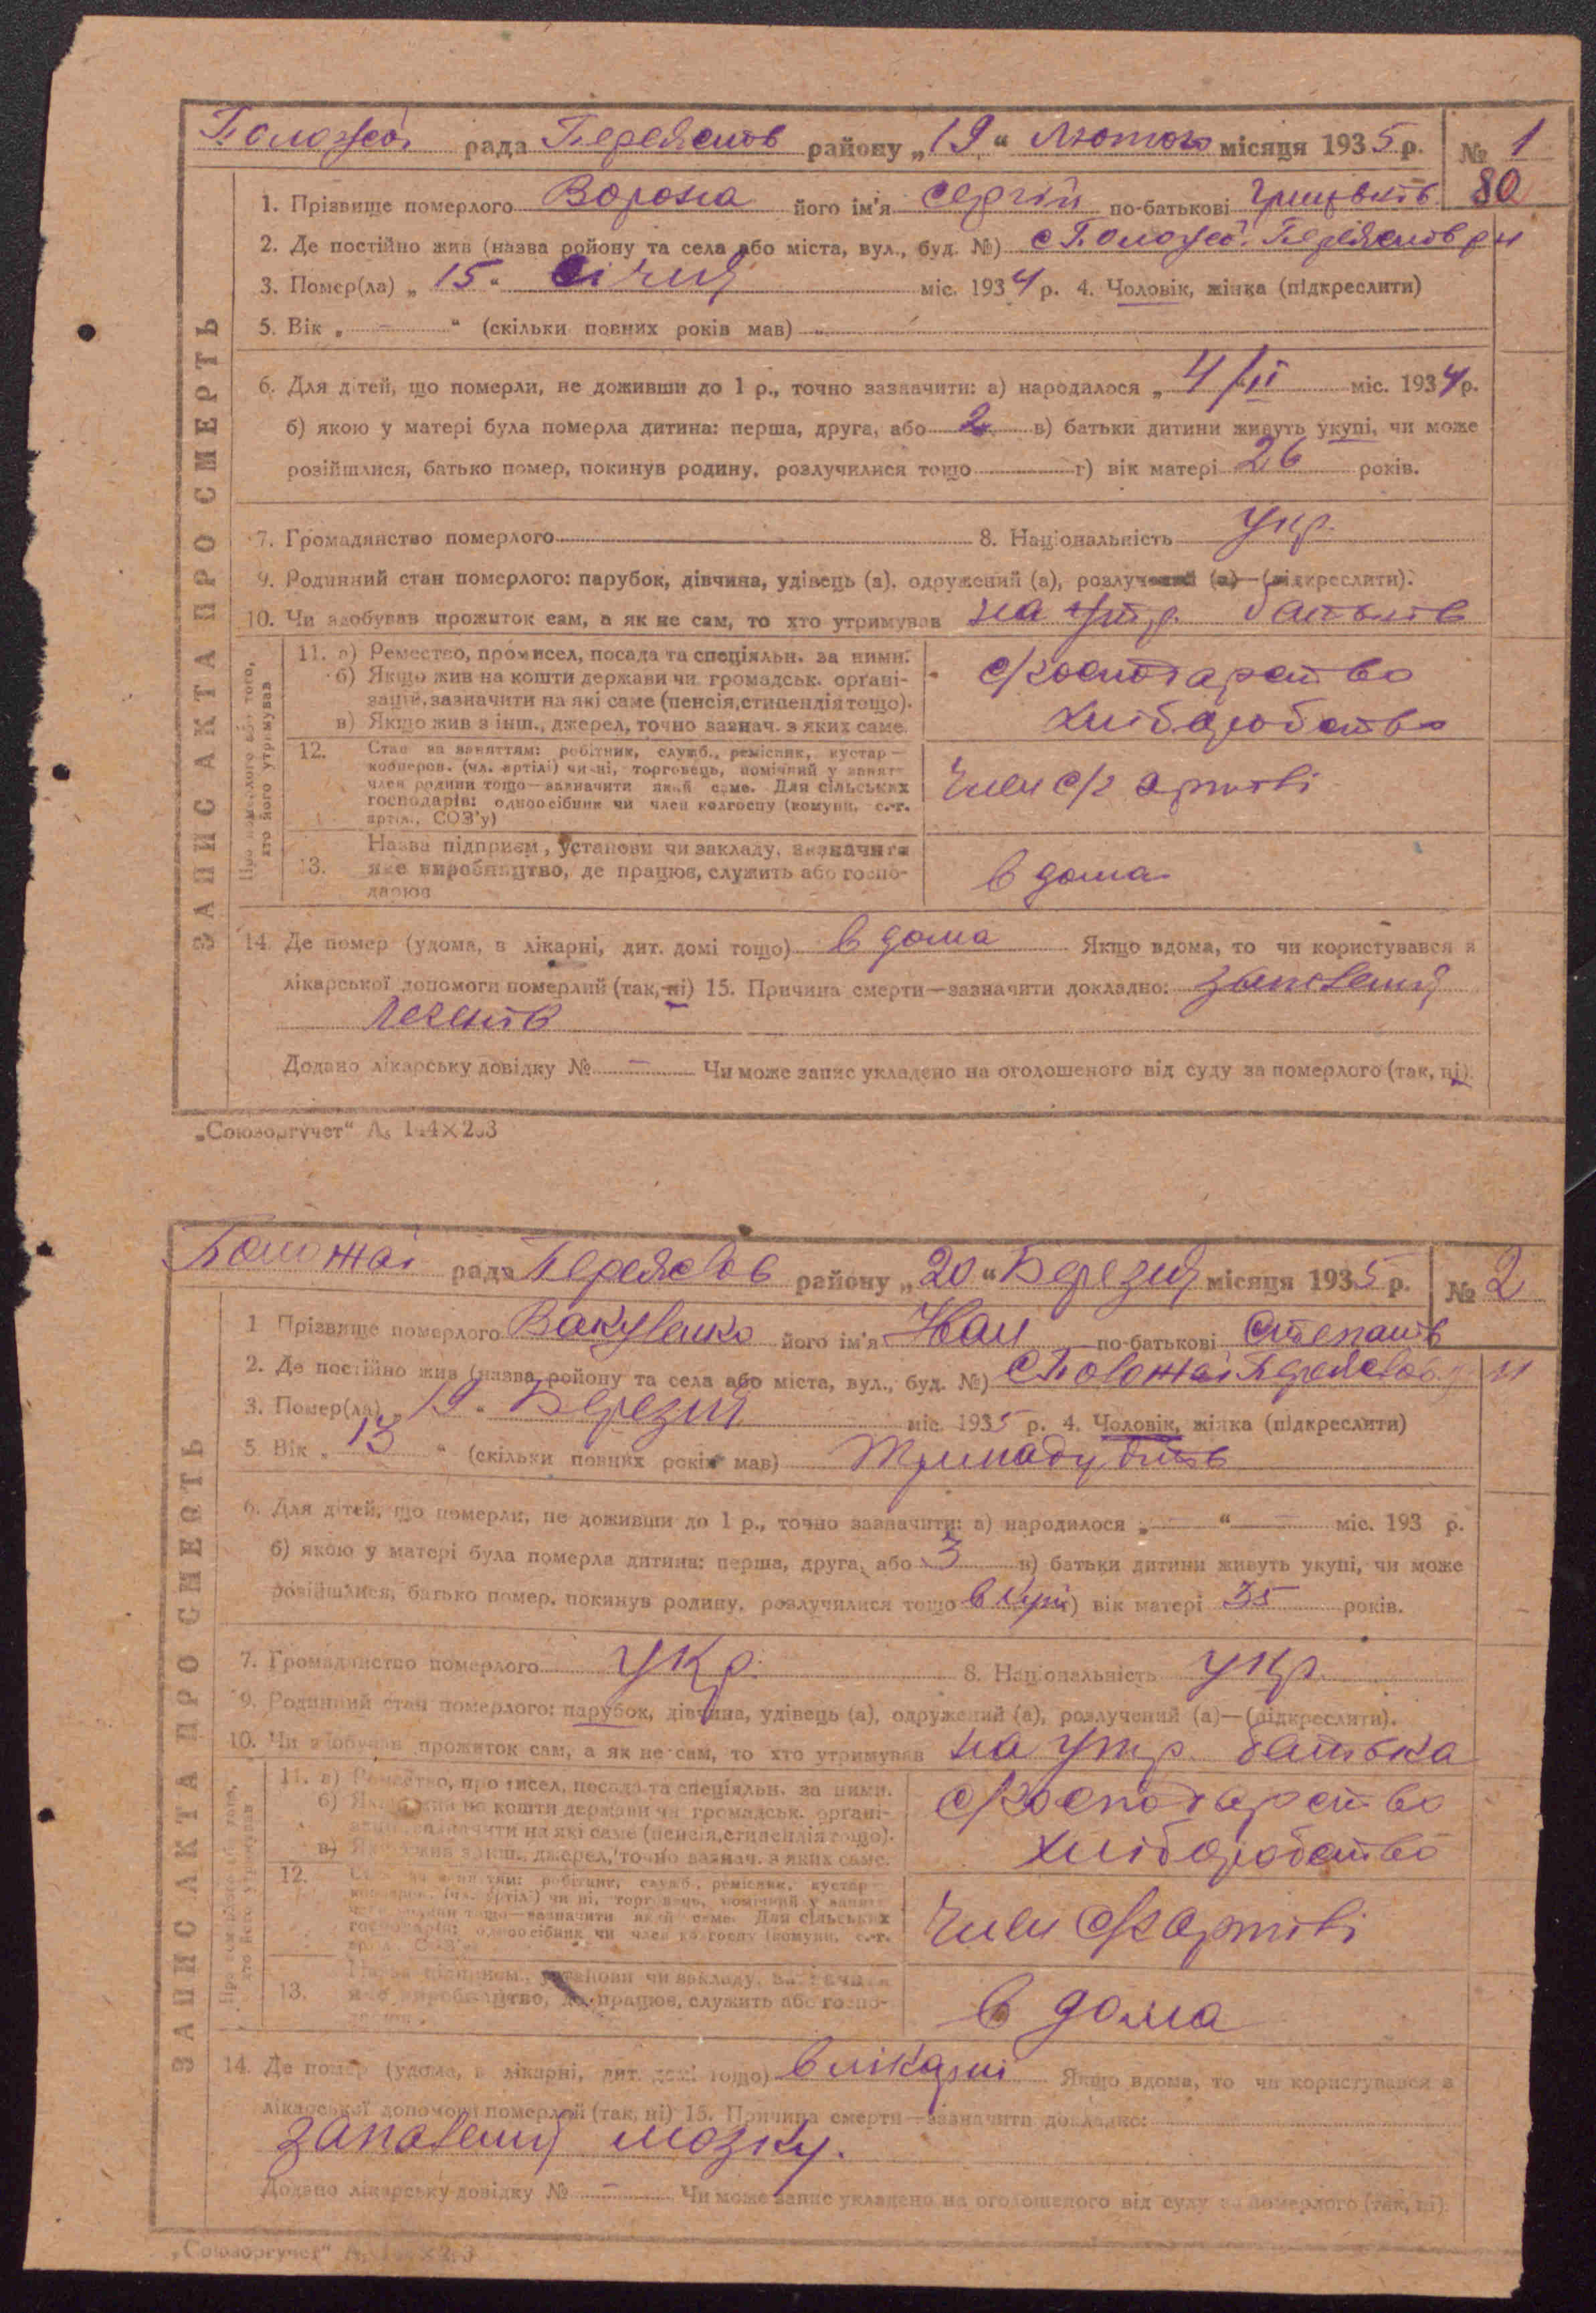 Положаї рада Переяслів району „19“ Лютого місяця 1935 р. № 1
80
1. Прізвище померлого Ворона його ім'я Сергій по-батькові Грицьків
2. Де постійно жив (назва ройону та села або міста, вул., буд. №) с Положаї Переяслів р н
3. Помер(ла) „15“ Січня міс. 1934 р. 4. Чоловік, жінка (підкреслити)
5. Вік „ - “ (скільки повних років мав)
6. Для дітей, що померли, не доживши до 1 р., точно зазначити: а) народилося „4/II міс. 1934 р.
б) якою у матері була померла дитина: перша, друга, або 2 в) батьки дитини живуть укупі, чи може
розійшлися, батько помер, покинув родину, розлучилися тощо г) вік матері 26 років.
7. Громадянство померлого 8. Національність Укр.
9. Родинний стан померлого: парубок, дівчина, удівець (а), одружений (а), розлучений (а)—(підкреслити).
10. Чи здобував прожиток сам, а як не сам, то хто утримував на утр. батьків
Про померлого або того, хто його утримував
11. а) Ремество, промисел, посада та спеціяльн. за ними.
б) Якщо жив на кошти держави чи громадськ. органі-
зацій, зазначити на які саме (пенсія, стипендія тощо).
в) Якщо жив з інш., джерел, точно зазнач. з яких саме.
с/господарство
хліборобство
12. Стан за заняттям: робітник, служб., ремісник, кустар—
кооперов. (чл. артілі) чи ні, торговець, помічний у занят-
член родини тощо—зазначити який саме. Для сільських
господарів: одноосібник чи член колгоспу (комуни, с.-г.
артіл., СОЗ'у)
Член с/г артілі
13. Назва підприєм., установи чи закладу, зазначити
яке виробництво, де працює, служить або госпо-
дарює
в дома
14. Де помер (удома, в лікарні, дит. домі тощо) в дома Якщо вдома, то чи користувався з
лікарської допомоги померлий (так, ні) 15. Причина смерти—зазначити докладно: запалення
легенів
Додано лікарську довідку № - Чи може запис укладено на оголошеного від суду за померлого (так, ні).
ЗАПИС АКТА ПРО СМЕРТЬ
„Союзоргучет“ А₅ 144×203
Положаї рада Переяслов району „20“ Березня місяця 1935 р. № 2
1 Прізвище померлого Вакуленко його ім'я Іван по-батькові Степанів
2. Де постійно жив (назва ройону та села або міста, вул., буд. №) с Положаї Переяслов р н
3. Помер(ла) „19“ Березня міс. 1935 р. 4. Чоловік, жінка (підкреслити)
5. Вік „13“ (скільки повних років мав)
6. Для дітей, що померли, не доживши до 1 р., точно зазначити: а) народилося „ “ міс. 193 р.
б) якою у матері була померла дитина: перша, друга, або 3 в) батьки дитини живуть укупі, чи може
розійшлися, батько помер, покинув родину, розлучилися тощо вкупі г) вік матері 35 років.
7. Громадянство померлого Укр. 8. Національність Укр.
9. Родинний стан померлого: парубок, дівчина, удівець (а), одружений (а), розлучений (а)—(підкреслити).
10. Чи здобував прожиток сам, а як не сам, то хто утримував на утр. батька
Про померлого або того, хто його утримував
11. а) Ремество, промисел, посада та спеціяльн. за ними.
б) Якщо жив на кошти держави чи громадськ. органі-
зацій, зазначити на які саме (пенсія, стипендія тощо).
в) Якщо жив з інш., джерел, точно зазнач. з яких саме.
с/господарство
хліборобство
12. Стан за заняттям: робітник, служб., ремісник, кустар—
кооперов. (чл. артілі) чи ні, торговець, помічний у занят-
член родини тощо—зазначити який саме. Для сільських
господарів: одноосібник чи член колгоспу (комуни, с.-г.
Член с/г артілі
13. Назва підприєм., установи чи закладу, зазначити
яке виробництво, де працює, служить або госпо-
в дома
14. Де помер (удома, в лікарні, дит. домі тощо) в лікарні Якщо вдома, то чи користувався з
лікарської допомоги померлий (так, ні) 15. Причина смерти—зазначити докладно:
запалення мозку.
Додано лікарську довідку № - Чи може запис укладено на оголошеного від суду за померлого (так, ні).
ЗАПИС АКТА ПРО СМЕРТЬ
„Союзоргучет“